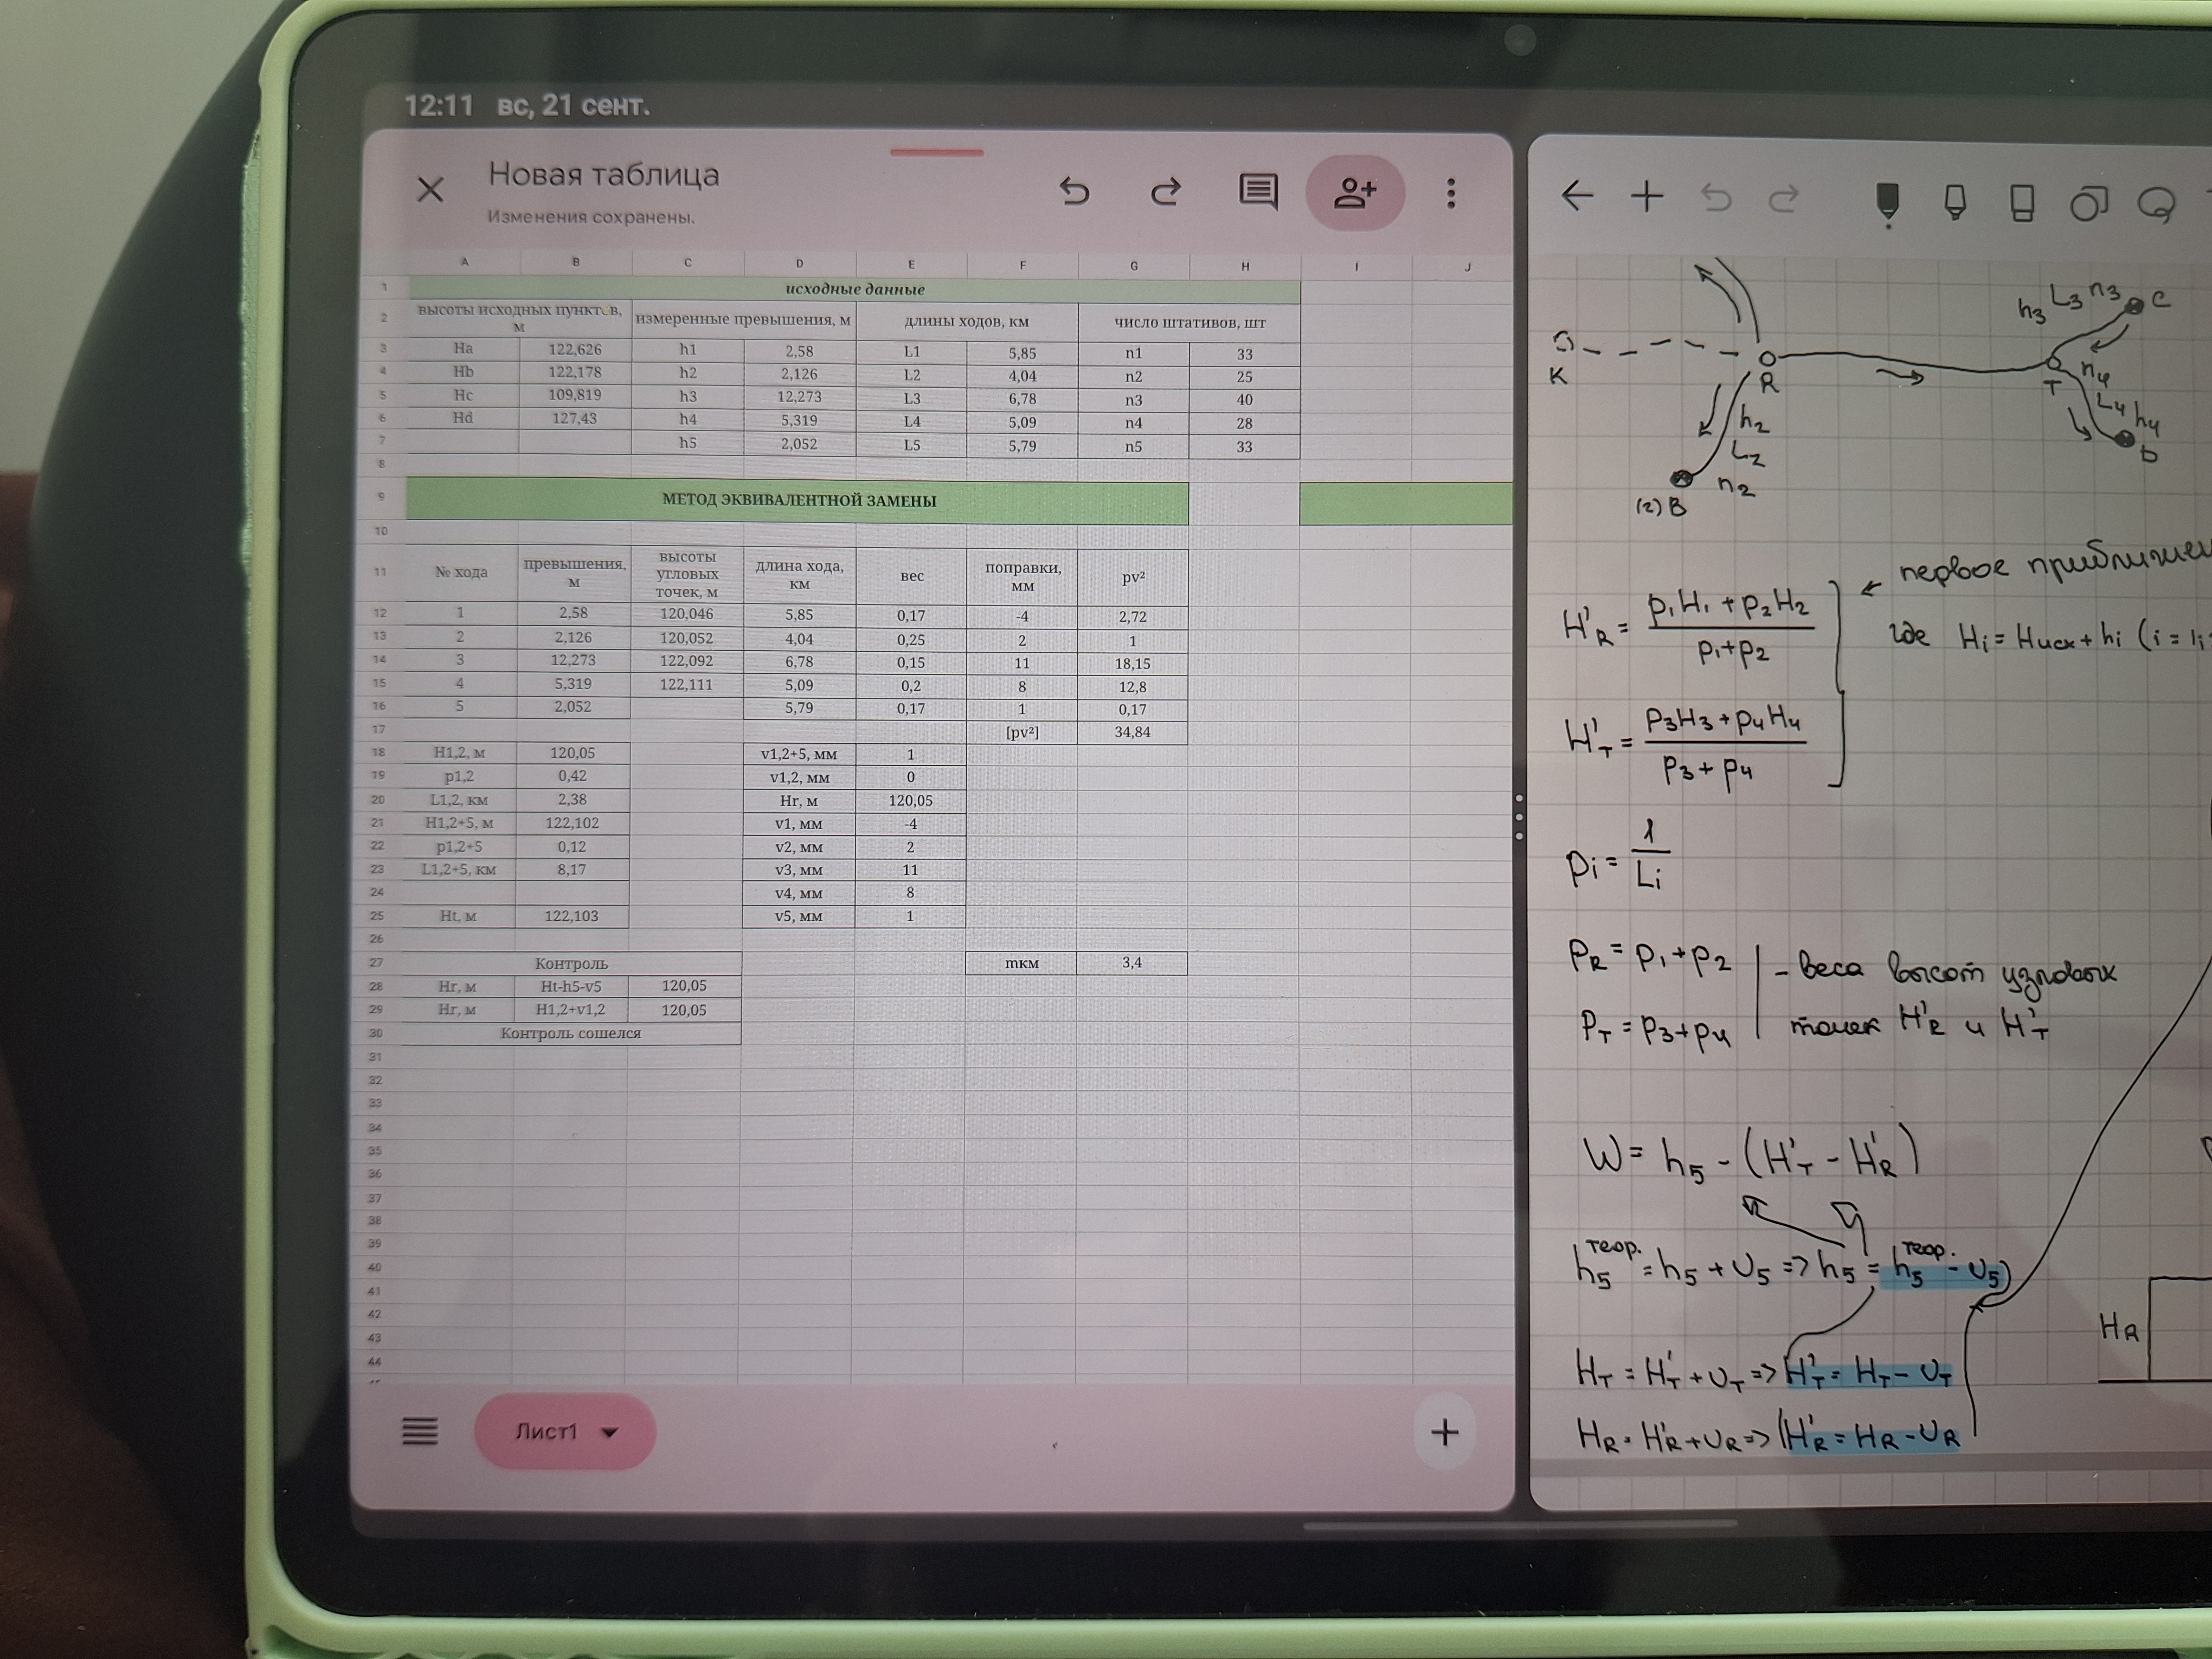 12:11 вс, 21 сент.
Новая таблица
Изменения сохранены.
A B C D E F G H I J
1 исходные данные
2 высоты исходных пунктов, м измеренные превышения, м длины ходов, км число штативов, шт
3 Ha 122,626 h1 2,58 L1 5,85 n1 33
4 Hb 122,178 h2 2,126 L2 4,04 n2 25
5 Hc 109,819 h3 12,273 L3 6,78 n3 40
6 Hd 127,43 h4 5,319 L4 5,09 n4 28
7 h5 2,052 L5 5,79 n5 33
8
9 МЕТОД ЭКВИВАЛЕНТНОЙ ЗАМЕНЫ
10
11 № хода превышения, м высоты угловых точек, м длина хода, км вес поправки, мм pv²
12 1 2,58 120,046 5,85 0,17 -4 2,72
13 2 2,126 120,052 4,04 0,25 2 1
14 3 12,273 122,092 6,78 0,15 11 18,15
15 4 5,319 122,111 5,09 0,2 8 12,8
16 5 2,052 5,79 0,17 1 0,17
17 [pv²] 34,84
18 H1,2, м 120,05 v1,2+5, мм 1
19 p1,2 0,42 v1,2, мм 0
20 L1,2, км 2,38 Hr, м 120,05
21 H1,2+5, м 122,102 v1, мм -4
22 p1,2+5 0,12 v2, мм 2
23 L1,2+5, км 8,17 v3, мм 11
24 v4, мм 8
25 Ht, м 122,103 v5, мм 1
26
27 Контроль mкм 3,4
28 Hr, м Ht-h5-v5 120,05
29 Hr, м H1,2+v1,2 120,05
30 Контроль сошелся
31
32
33
34
35
36
37
38
39
40
41
42
43
44
Лист1
h3 L3 n3 C
K R T n4
L4 h4
D
h2
L2
n2
(2) B
первое
H'R = (p1H1 + p2H2) / (p1+p2)
где Hi = Hисх + hi (i = 1;
H'T = (p3H3 + p4H4) / (p3 + p4)
pi = 1 / Li
PR = p1 + p2 - веса высот узловых
PT = p3 + p4 точек H'R и H'T
W = h5 - (H'T - H'R)
h5 теор. = h5 + υ5 => h5 = h5 теор. - υ5)
HT = H'T + υT => H'T = HT - υT
HR = H'R + υR => (H'R = HR - υR
HR